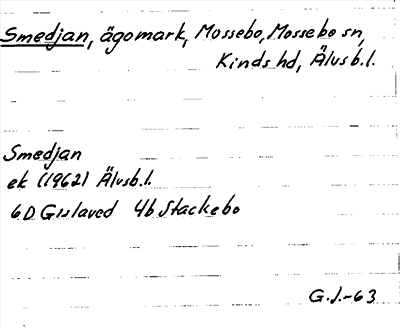 Smedjan, ägomark, Mossebo, Mossebo sn,
Kinds hd, Älvsb.l.
Smedjan
ek (1962) Älvsb.l.
6D Gislaved 4b Stackebo
G.J.-63